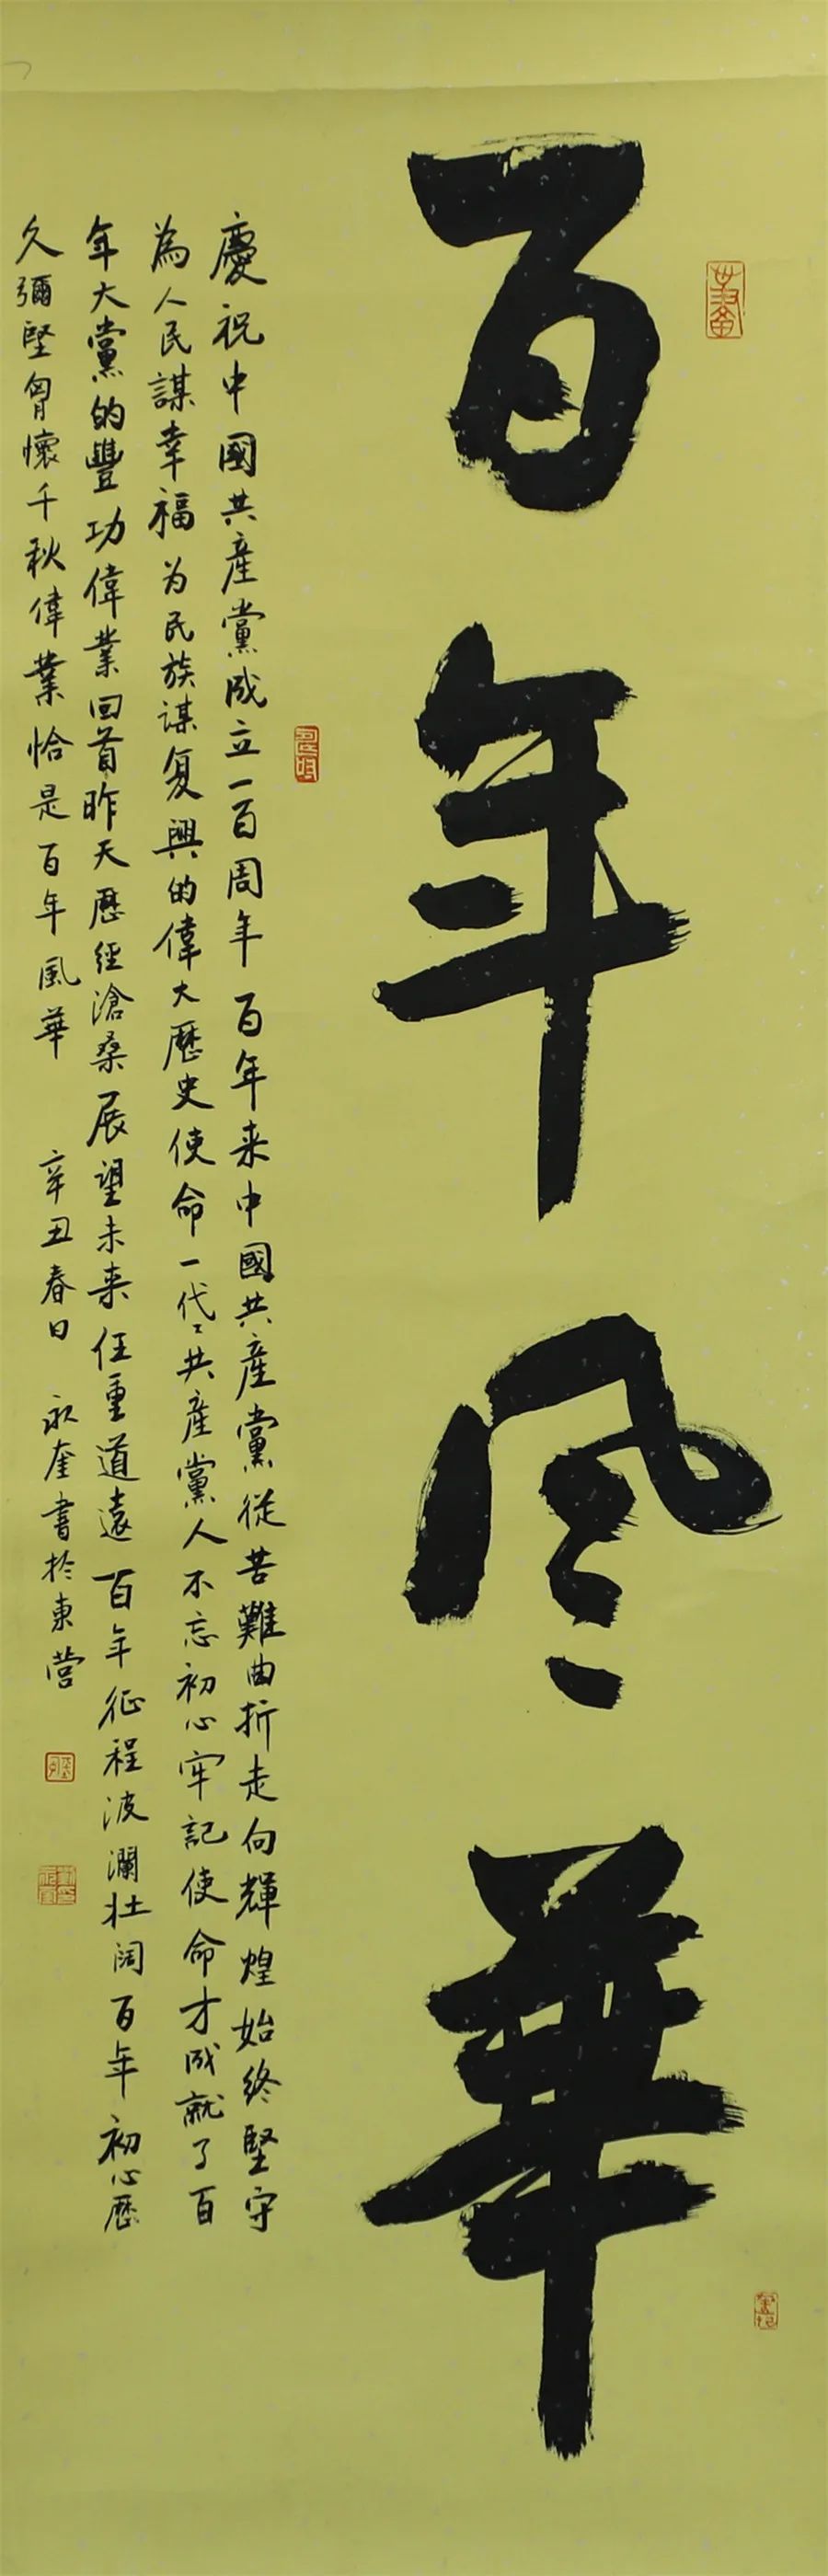 百年风華
慶祝中國共產黨成立一百周年百年来中國共產黨從苦難曲折走向輝煌始終堅守
為人民謀幸福为民族謀复興的偉大歷史使命一代々共產黨人不忘初心牢記使命才成就了百
年大黨的豐功偉業回首昨天歷經滄桑展望未来任重道遠百年征程波瀾壮闊百年初心歷
久彌堅胷懷千秋偉業恰是百年風華 辛丑春日 永奎書於東營